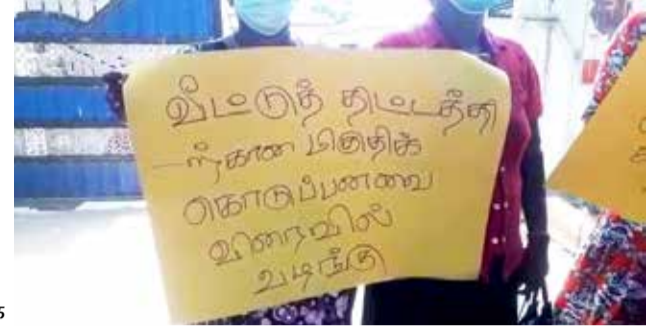 வீட்டுத் திட்டத்தி
-ற்கான மிகுதிக்
கொடுப்பனவை
விரைவில்
வழங்கு